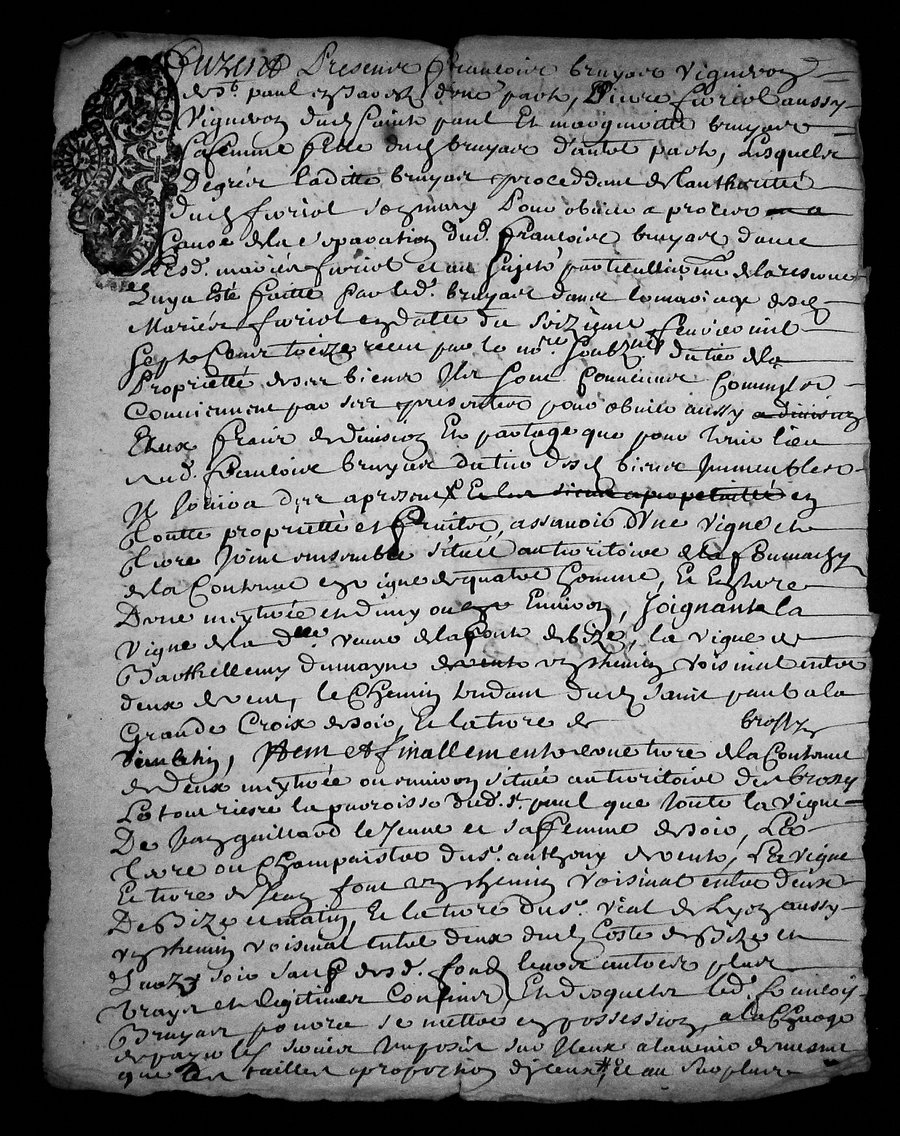 Furent Presents Francois bruyas vigneron
de st. paul en Jarest d'une part, Pierre furiol aussy
Vigneron dud saint paul Et margueritte bruyas
sa femme fille dud bruyas d'autre part, Lesquelles
De gré laditte bruyas procedant de l'authorité
dud furiol son mary Pour obvier a proces
Cause de la separation dud. francois bruyas d'avec
lesd. mariés furiol et au sujet particullierem de la reserve
Luy a esté faitte par led. bruyas dans le mariage desd
Mariés furiol en datte du seizieme fevrier mil
sept Cent treize receu par le no.re du tier de la
Propriette de ses biens Ils sont Convenus Comme
Conviennent par ses presentes pour obvier aussy
Et aux frais de division Et partage que pour tenir lieu
aud. francois bruyas du tier desd biens Immeubles
Il jouira des a present en
toutte propriette et fruits, assavoir d'une vigne et
terre Joint ensemble située au territoire de
de la Contenue en vigne de quatre homme, Et En terre
D'une meytrée et dimy ou Environ, Joignant la
vigne de la d.lle veuve de la font de bize, la vigne de
Barthellemy dumayne de vent un chemin voisinal entre
deux de vent, le Chemin tendant dud saint paul a la
Grande Croix de soir, Et la terre de brossy
de matin, Item et finallement une terre de la Contenue
de deux meytrée ou environ située au territoire de brossy
Le tout riere la parroisse dud. st. paul que Joute la vigne
De Jean guillard le Jeune et sa femme de soir, Les
terre ou Champaistre du sr. anthony de vent, La vigne
Et terre de Jean font un chemin voisinal entre deux
De Bize et matin, Et la terre du sr. vial de Lyon aussy
un chemin voisinal entre deux dud Coste de Bize et
de soir sauf desd. fonds leurs autres plus
vrays et legitimes Confins, Et desquels led. francois
Bruyas pourra se mettre en possession, a la Charge
de payer les servis Imposés sur Iceux a l'avenir de mesme
que les tailles a proportion d'iceux, Et au surplus